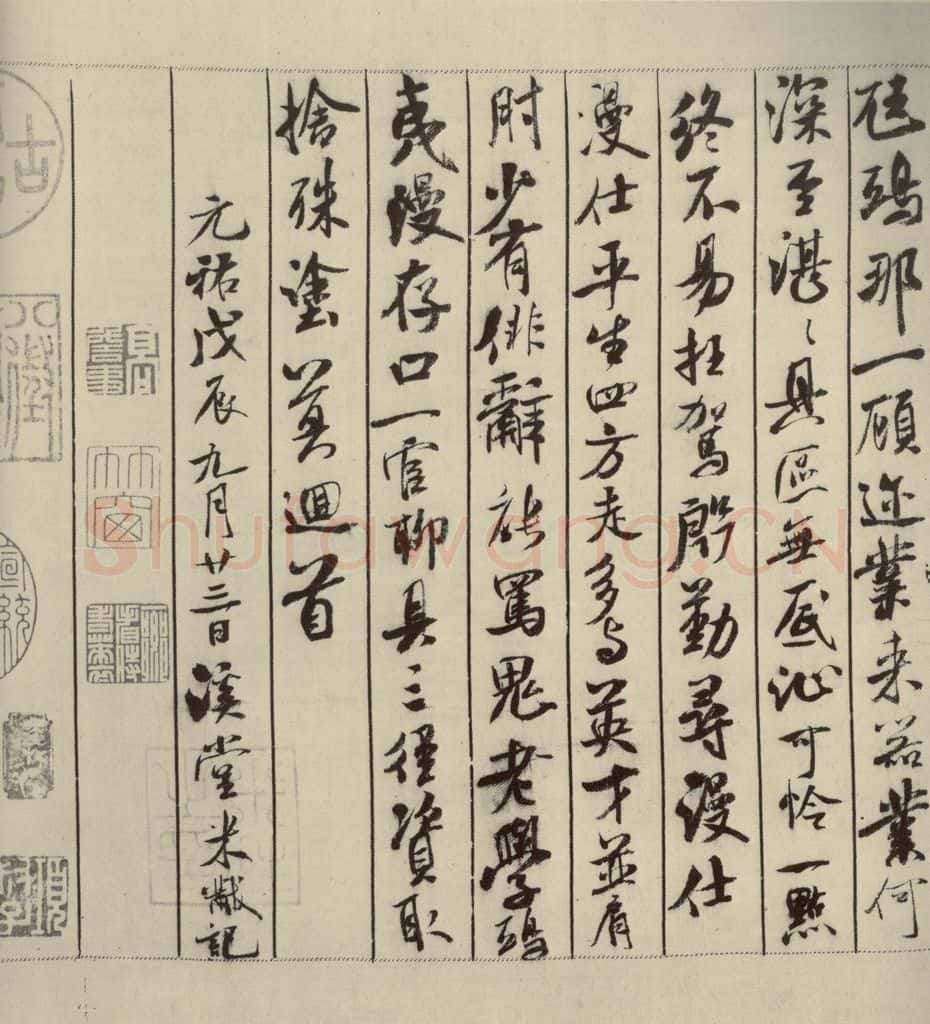 尫鴟那一顧迩業来器業何
深至湛々具區無底沚可怜一點
終不易枉駕殷勤尋漫仕
漫仕平生四方走多与英才並肩
肘少有俳辭能罵鬼老學鴟
夷漫存口一官聊具三徑資取
捨殊塗莫迴首
元祐戊辰九月廿三日溪堂米黻記
竹窗
Shufawang.CN